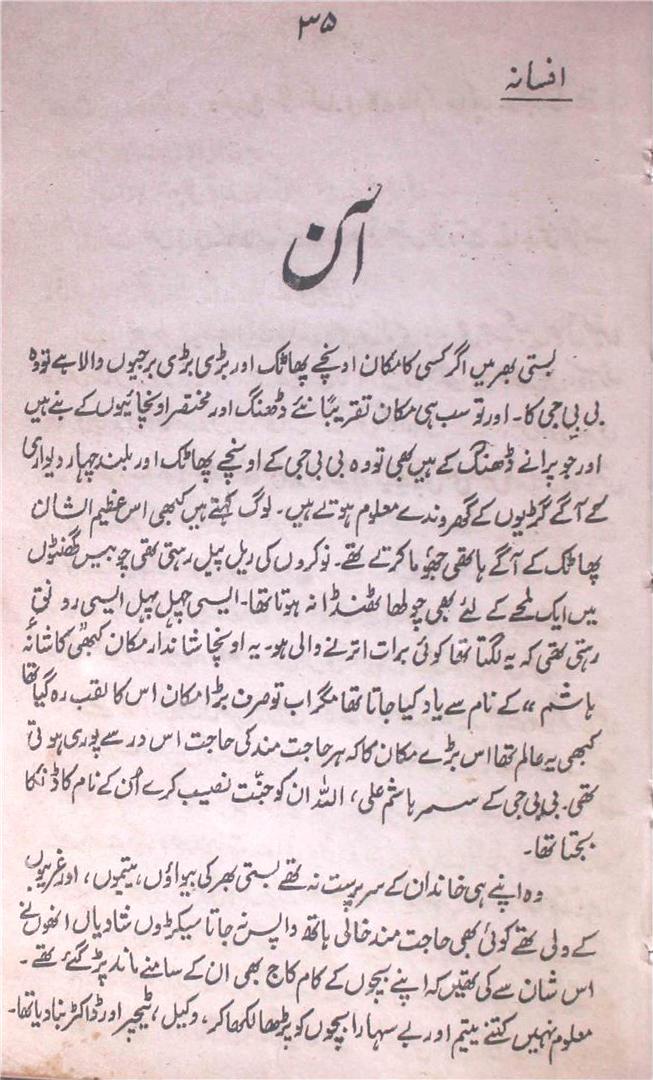 ۳۵
افسانہ
آن
بستی بھر میں اگر کسی کا مکان اونچے پھاٹک اور بڑی بڑی برجیوں والا ہے تو وہ
بی بی جی کا۔ اور تو سب ہی مکان تقریباً نئے ڈھنگ اور مختصر اونچائیوں کے بنے ہیں
اور جو پرانے ڈھنگ کے ہیں بھی تو وہ بی بی جی کے اونچے پھاٹک اور بلند چہار دیواری
کے آگے گڑیوں کے گھروندے معلوم ہوتے ہیں۔ لوگ کہتے ہیں کبھی اس عظیم الشان
پھاٹک کے آگے ہاتھی جھوما کرتے تھے۔ نوکروں کی ریل پیل رہتی تھی چوبیس گھنٹوں
میں ایک لمحے کے لئے بھی چولھا ٹھنڈا نہ ہوتا تھا۔ ایسی چہل پہل ایسی رونق
رہتی تھی کہ یہ لگتا تھا کوئی برات اترنے والی ہو۔ یہ اونچا شاندار مکان کبھی "کاشانۂ
ہاشم" کے نام سے یاد کیا جاتا تھا مگر اب تو صرف بڑا مکان اس کا لقب رہ گیا تھا
کبھی یہ عالم تھا اس بڑے مکان کا کہ ہر حاجت مند کی حاجت اس در سے پوری ہوتی
تھی۔ بی بی جی کے سسر ہاشم علی، اللہ ان کو جنّت نصیب کرے اُن کے نام کا ڈنکا
بجتا تھا۔
وہ اپنے ہی خاندان کے سرپرست نہ تھے بستی بھر کی بیواؤں، یتیموں، اور غریبوں
کے ولی تھے کوئی بھی حاجت مند خالی ہاتھ واپس نہ جاتا سیکڑوں شادیاں انھوں نے
اس شان سے کی تھیں کہ اپنے بچوں کے کام کاج بھی ان کے سامنے ماند پڑ گئے تھے۔
معلوم نہیں کتنے یتیم اور بے سہارا بچوں کو پڑھا لکھا کر، وکیل، ٹیچر اور ڈاکٹر بنا دیا تھا۔